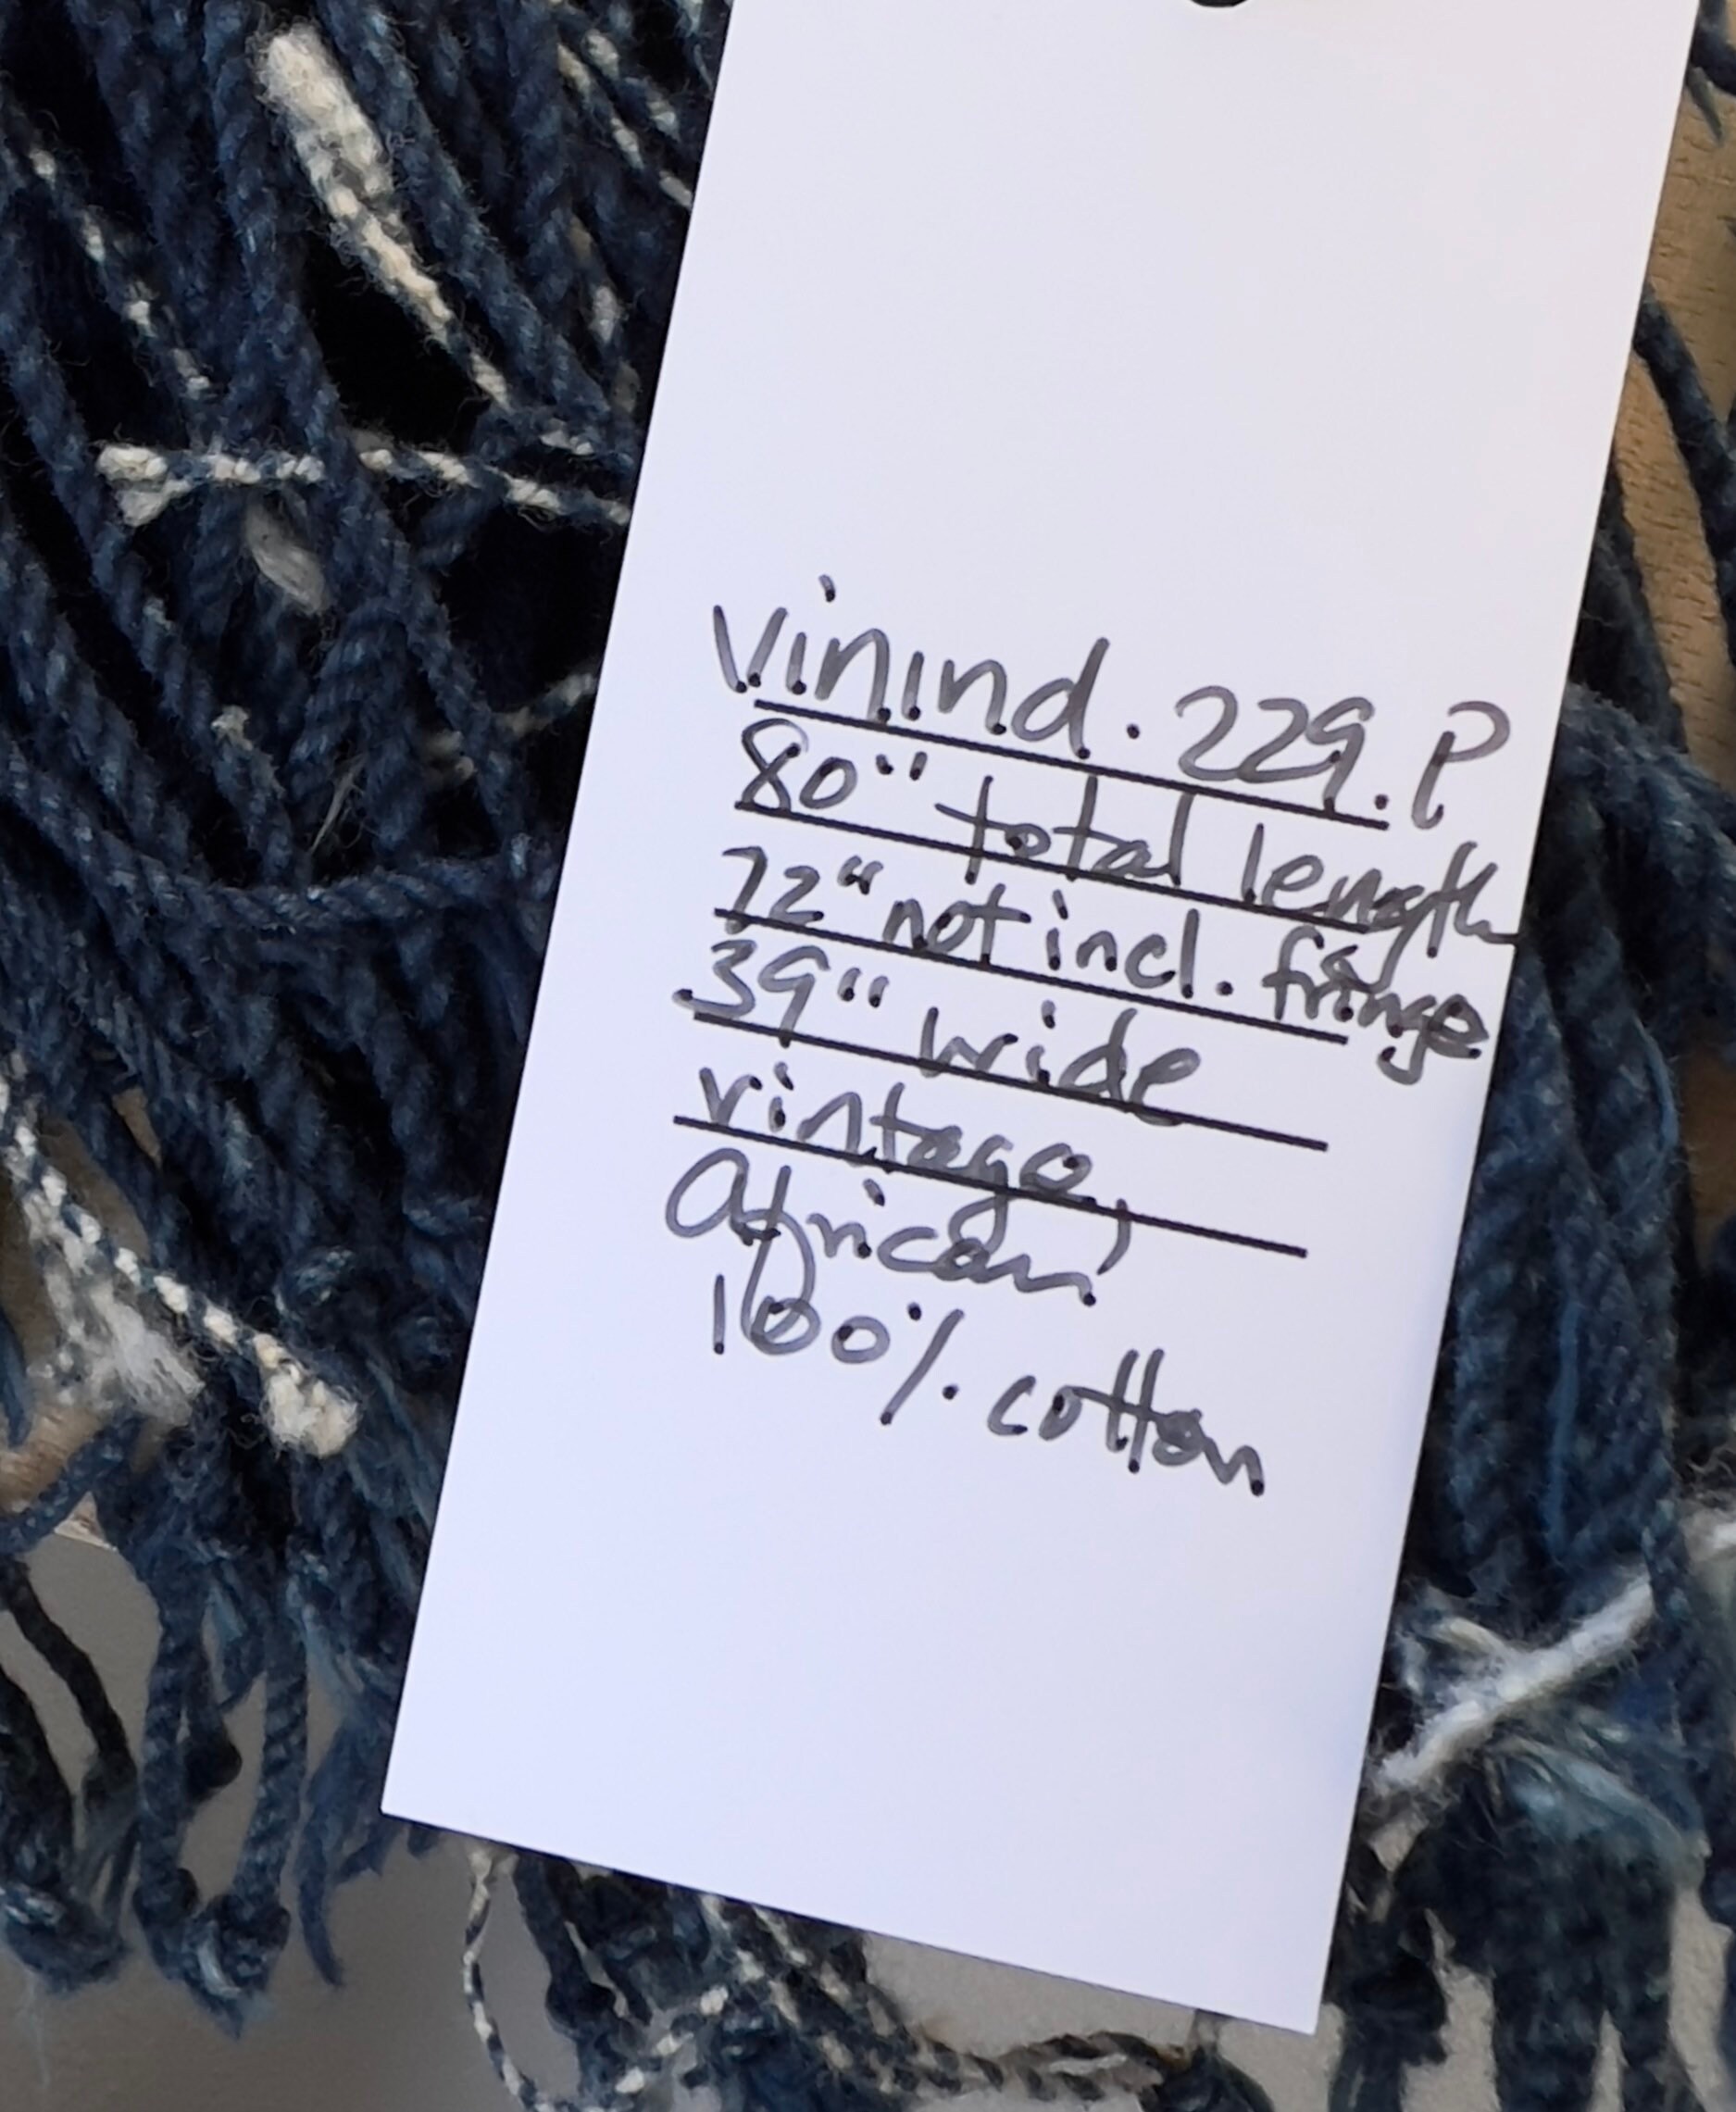 Vinind. 229. P
80" total length
72" not incl. fringe
39" wide
vintage,
African,
100% cotton